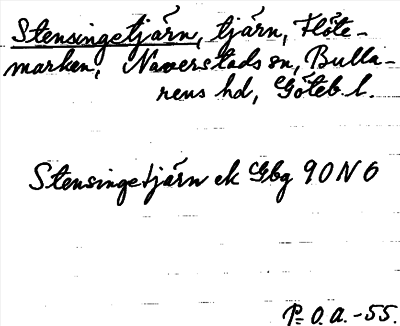 Stensingetjärn, tjärn, Flöte-
marken, Naverstads sn, Bulla-
rens hd, Göteb. l.
Stensingetjärn ek Gbg 90 N O
P. O. A. -55.